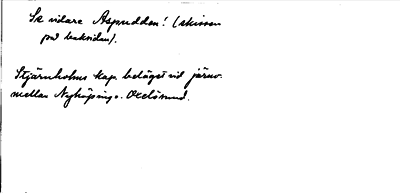 Se vidare Aspudden! (skissen
på baksidan).
Stjärnholms kap. beläget vid järnv.
mellan Nyköping o. Oxelösund.